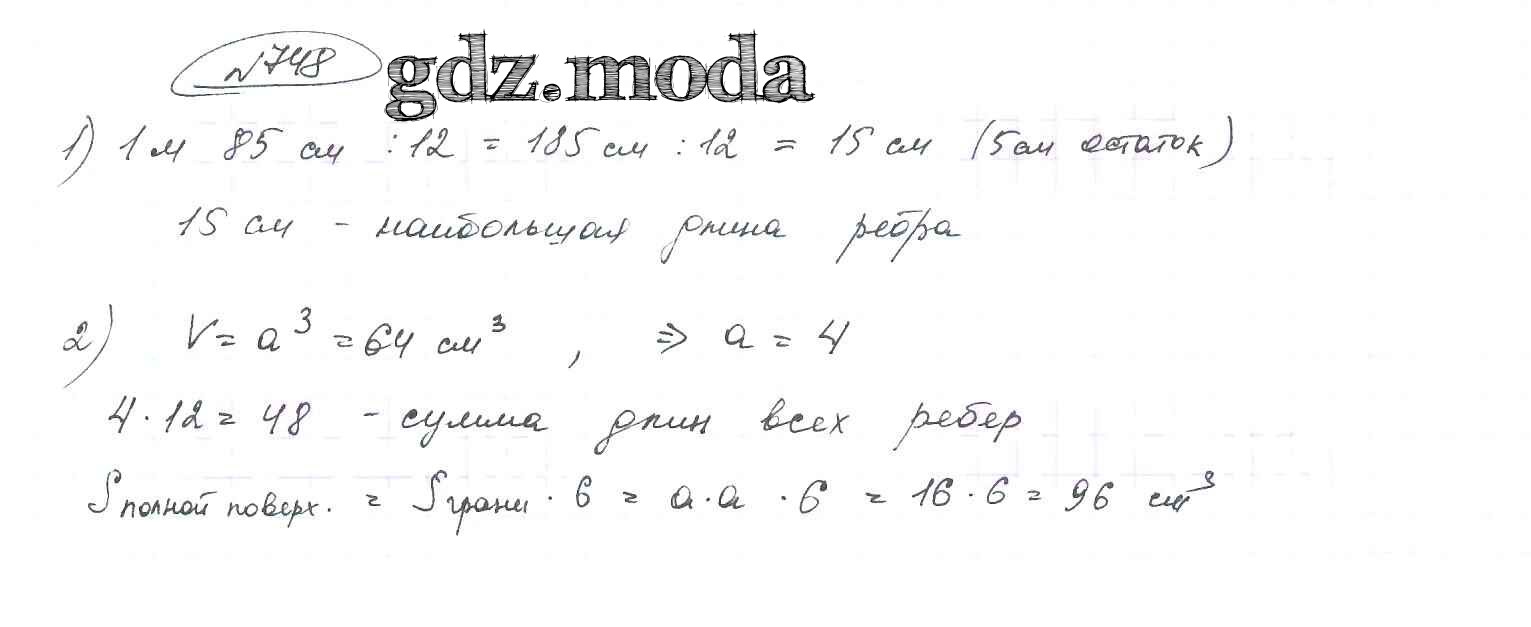 №748 gdz.moda
1) 1 м 85 см : 12 = 185 см : 12 = 15 см (5 см остаток)
15 см - наибольшая длина ребра
2) V = a³ = 64 см³ , ⇒ a = 4
4 · 12 = 48 - сумма длин всех ребер
S полной поверх. = S грани · 6 = a · a · 6 = 16 · 6 = 96 см³